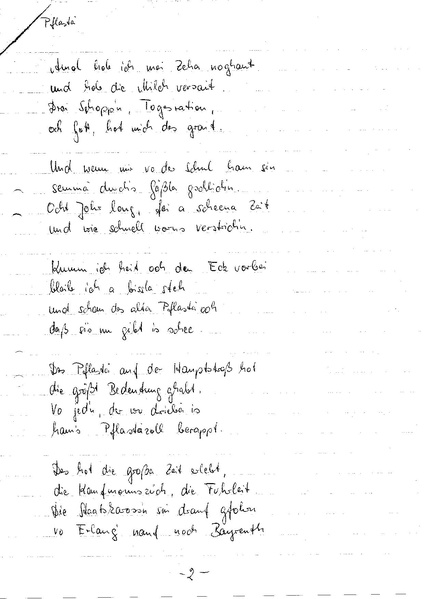 Pflastä
Amol hob ich mei Zeha noghaut
und hob die Milch versait.
Drei Schoppn, Togesration,
och Gott, hot mich des graut.
Und wenn mir vo der Schul ham sin
semmä durchs Gäßla gschlichn.
Ocht Johr long, fei a scheena Zeit
und wie schnell worns verstrichn.
Kumm ich heit och den Eck vorbei
bleib ich a bissla steh
und schau des alta Pflastä oh
daß sis nu gibt is schee.
Des Pflastä auf der Hauptstroß hot
die größt Bedeutung ghabt.
Vo jedn, der wo drieba is
hams Pflastäzoll berappt.
Des hot die großa Zeit erlebt,
die Kaufmannszüch, die Fuhrleit
Die Staatskarossn sin drauf gfohrn
vo Erlang' nauf noch Bayreuth
-2-